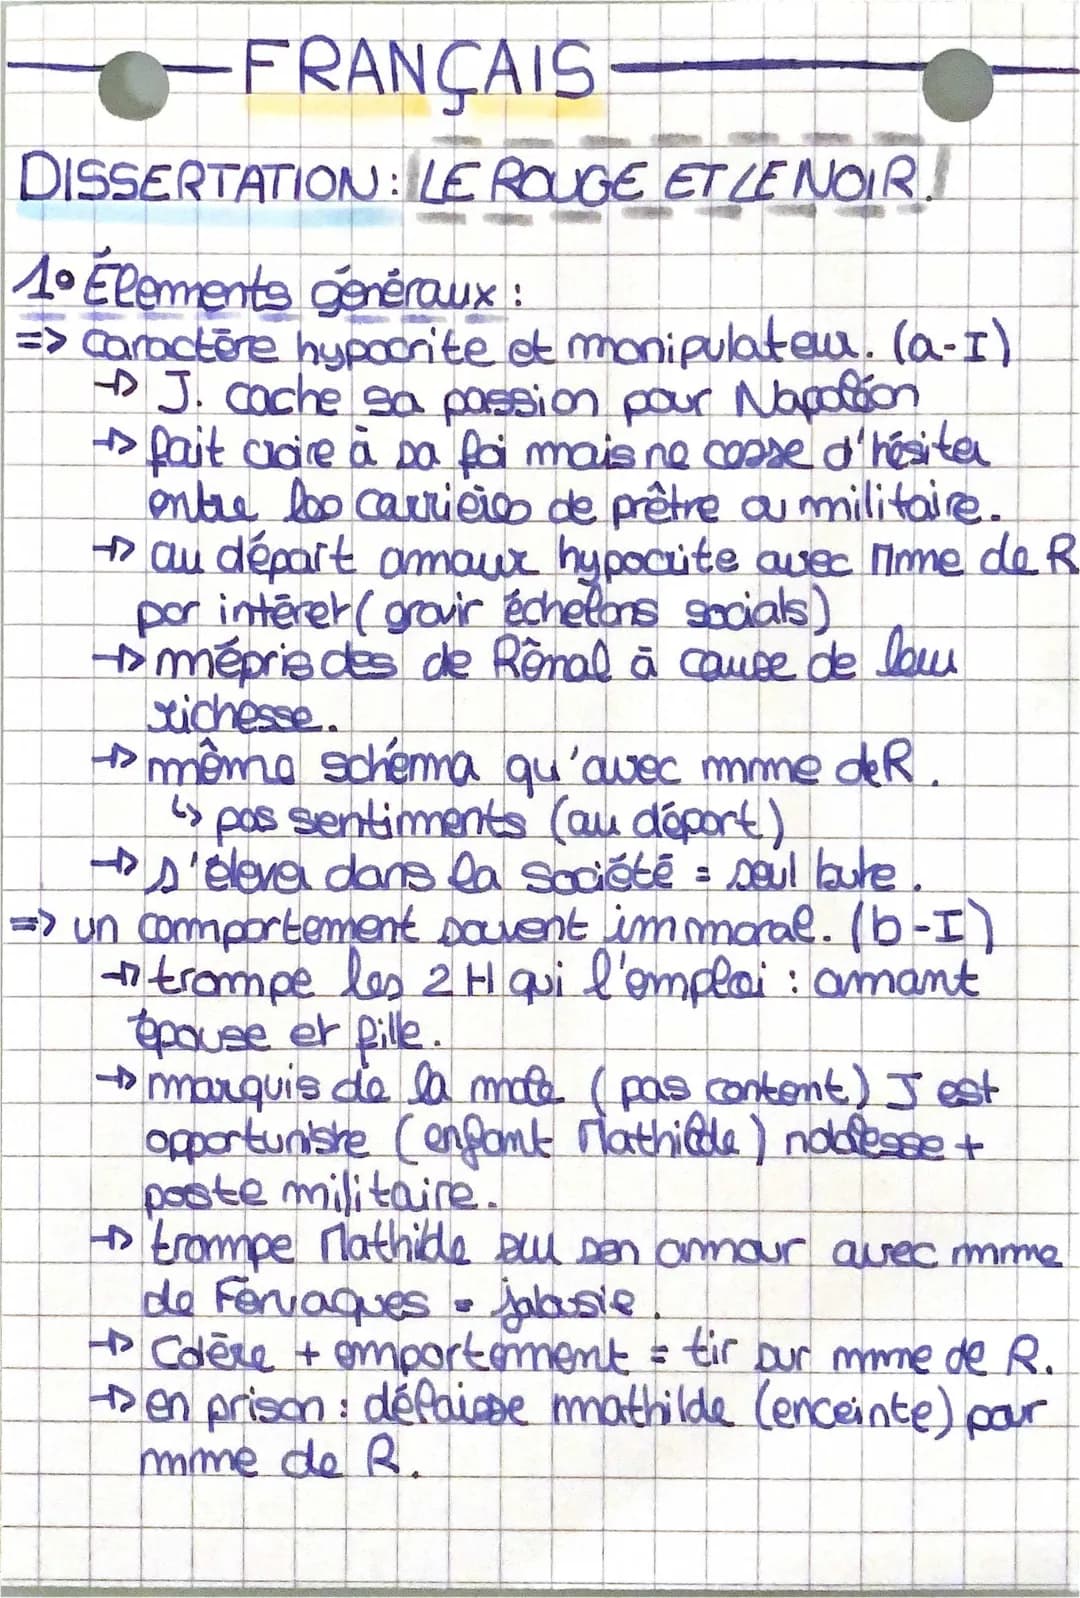 FRANÇAIS
DISSERTATION : LE ROUGE ET LE NOIR.
1° Élements généraux :
=> Caractère hypocrite et manipulateur. (a-I)
→ J. cache sa passion pour Napoléon
→ fait croire à sa foi mais ne cesse d'hésiter
entre les carrières de prêtre ou militaire.
→ au départ amour hypocrite avec Mme de R
par intêret (gravir échelons socials)
→ mépris des de Rênal à cause de leur
richesse.
→ même schéma qu'avec mme de R.
↳ pas sentiments (au départ)
→ s'élever dans la société = seul bute.
=> un comportement souvent immoral. (b-I)
→ trompe les 2 H qui l'emploi : amant
épouse et fille.
→ marquis de la mole (pas content) J est
opportuniste (enfant Mathilde) noblesse +
poste militaire.
→ trompe Mathilde sur son amour avec mme
de Fervaques = jalousie.
→ Colère + emportement = tir sur mme de R.
→ en prison : délaisse mathilde (enceinte) pour
mme de R.